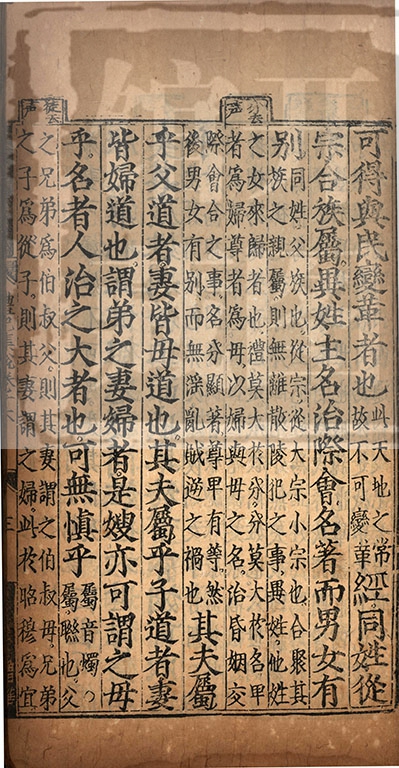 分去
声
從去
声
可得與民變革者也此天地之常故不可變革經。同姓從
宗合族屬異姓主名治際會名著而男女有
別同姓父族也從宗從大宗小宗也合聚其
族之親屬則無離散陵犯之事異姓他姓
之女來歸者也禮莫大於分分莫大於名卑
者為婦尊者為母以婦與母之名治昏姻交
際會合之事名分顯著尊卑有等然
後男女有別而無淫亂賊逆之禍也其夫屬
乎父道者妻皆母道也其夫屬乎子道者妻
皆婦道也謂弟之妻婦者是嫂亦可謂之母
乎名者人治之大者也可無慎乎屬音燭○屬聯也父
之兄弟為伯叔父則其妻謂之伯叔母兄弟
之子為從子則其妻謂之婦此於昭穆為宜